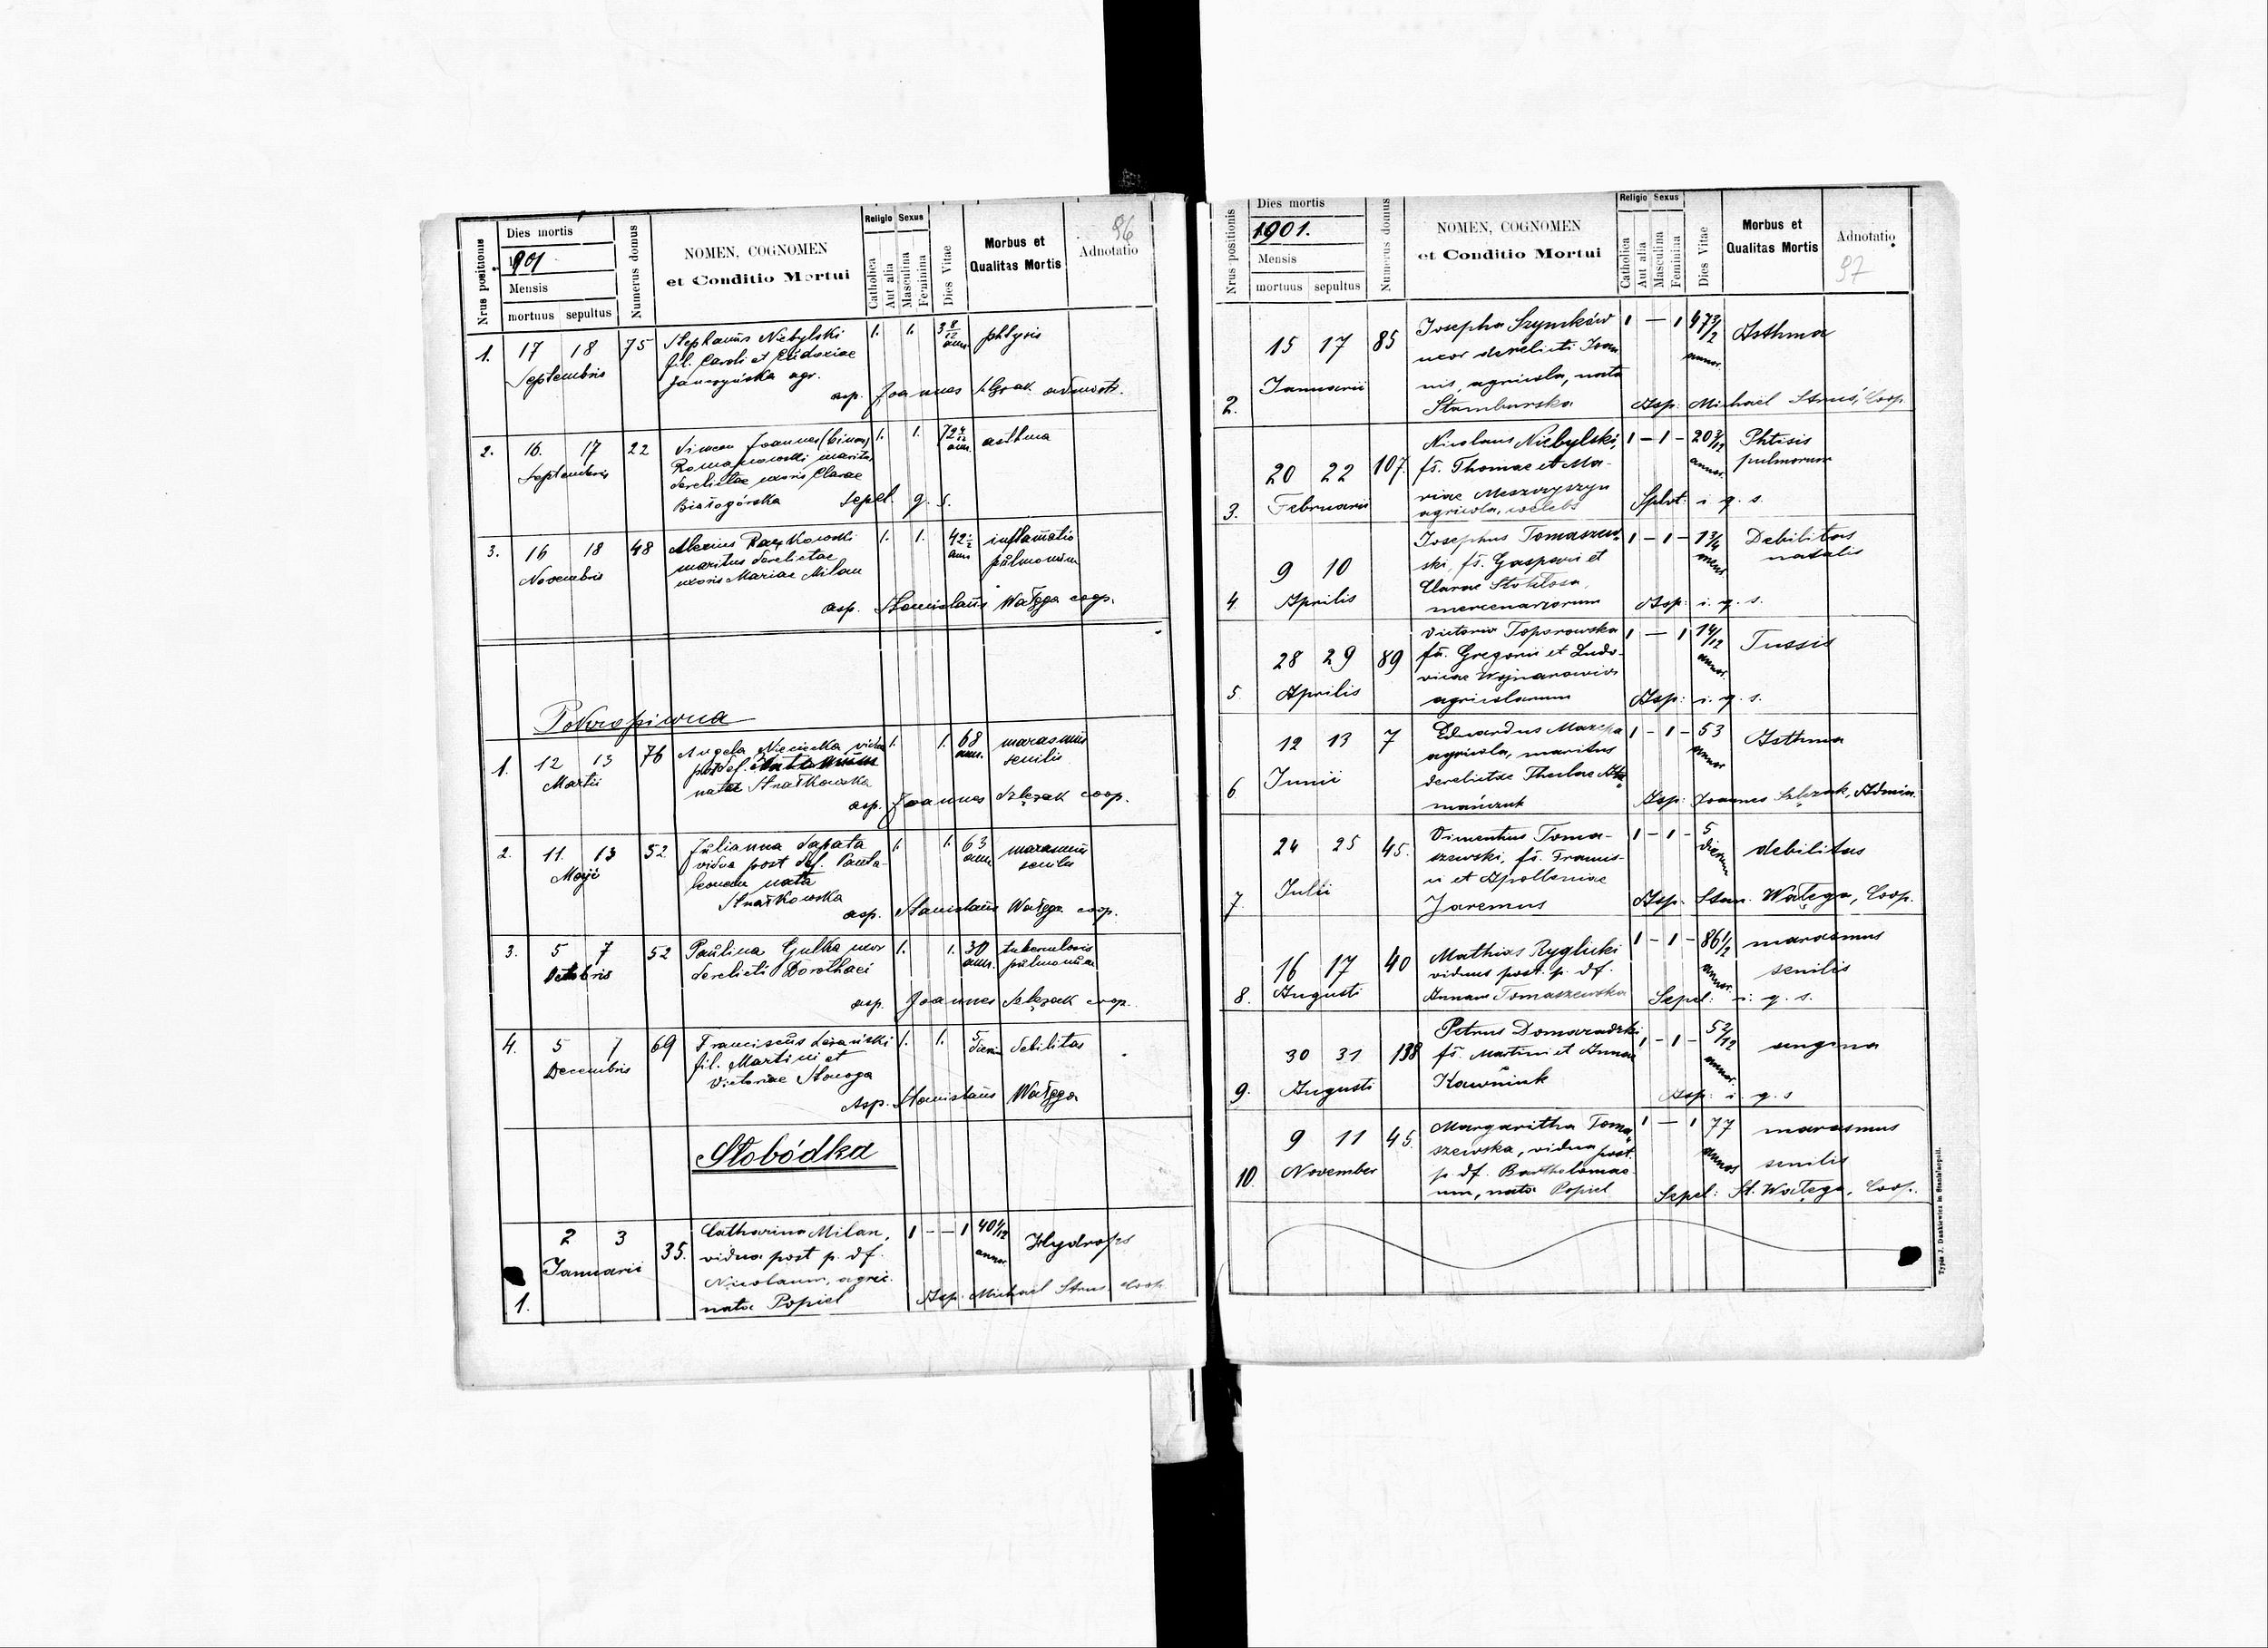 96
Nrus positionis
Dies mortis
1901
Mensis
mortuus sepultus
Numerus domus
NOMEN, COGNOMEN
et Conditio Mortui
Religio Sexus
Catholica
Aut alia
Masculina
Feminina
Dies Vitae
Morbus et
Qualitas Mortis
Adnotatio
1. 17 18 75 Stephanus Niebylski 1. 1. 3 8/12 phtysis
Septembris fil. Caroli et Eudoxiae ann.
agr.
asp. Joannes admistr.
2. 16. 17 22 Joannes (binom) 1. 1. 72 ann. asthma
Septembris Romanowski maritus
derelictae uxoris Clarae
Białogórska sepel. q. s.
3. 16 18 48 Alexius 1. 1. 42 ann. inflamatio
Novembris maritus derelictae pulmonum
uxoris Mariae Milan
asp. Stanislaus Wałęga coop.
Pokropiwna
1. 12 13 76 Angela vidua 1. 1. 68 marasmus
Martii post def. ann. senilis
nata Strutkowska
asp. Joannes Szlęzak coop.
2. 11. 13 52 Julianna Sapata 1. 1. 63 marasmus
Maji vidua post def. Panta- ann. senilis
leonem nata
Strutkowska
asp. Stanislaus Wałęga coop.
3. 5 7 52 Paulina Gulka uxor 1. 1. 30 tuberculosis
Octobris derelicti Dorothaei ann. pulmonum
asp. Joannes Szlęzak coop.
4. 5 7 69 Franciscus 1. 1. 5 dierum debilitas
Decembris fil. Martini et
Victoriae Stonoga
Asp. Stanislaus Wałęga
Słobódka
1. 2 3 35. Catharina Milan, 1 - - 1 40 4/12 Hydrops
Januarii vidua post p. df. annor.
Nicolaum, agric.
nata Popiel Asp: Michael Strus Coop.
Nrus positionis
Dies mortis
1901.
Mensis
mortuus sepultus
Numerus domus
NOMEN, COGNOMEN
et Conditio Mortui
Religio Sexus
Catholica
Aut alia
Masculina
Feminina
Dies Vitae
Morbus et
Qualitas Mortis
Adnotatio
97
2. 15 17 85 Josepha Szymków 1 — 1 47 annor. Asthma
Januarii uxor derelicti Joan
nis, agricola, nata
Stamburska Asp: Michael Strus, Coop.
3. 20 22 107. Nicolaus Niebylski, 1 - 1 - 20 annor. Phtisis
Februarii fs. Thomae et Ma- pulmorum
riae Meszczyszyn
agricola, coelebs Splvt: i. q. s.
4. 9 10 Josephus Tomaszew 1 - 1 - 1 3/4 mens. Debilitas
Aprilis ski, fs. Gaspari et natalis
Clarae Stokłosa,
mercenariorum Asp: i. q. s.
5. 28 29 89 Victoria Toporowska 1 — 1 14/12 annor. Tussis
Aprilis fa. Gregorii et Ludo-
vicae Wojnarowicz
agricolarum Asp: i. q. s.
6 12 13 7 Eduardus Mazepa 1 - 1 - 53 annor. Asthma
Junii agricola, maritus
derelictae Theclae Ata
mańczuk Asp: Joannes Szlęzak, Admin.
7. 24 25 45. Vincentius Toma- 1 - 1 - 5 dierum debilitas
Julii szewski, fs. Francis-
ci et Apolloniae
Jaremus Asp. Stan. Wałęga, Coop.
8. 16 17 40 Mathias Ryglicki 1 - 1 - 86 1/2 annor. marasmus
Augusti viduus post. p. df. senilis
Annam Tomaszewska Sepel: i. q. s.
9. 30 31 138 Petrus Domaradzki 1 - 1 - 5 2/12 annor. angina
Augusti fs. Martini et Annae
Kawniuk Asp: i. q. s
10. 9 11 45. Margaritha Toma 1 — 1 77 annor marasmus
November szewska, vidua post. senilis
p. df. Bartholomae-
um, nata Popiel Sepel: St. Wałęga, Coop.
Typis J. Dankiewicz in Stanislaopoli.